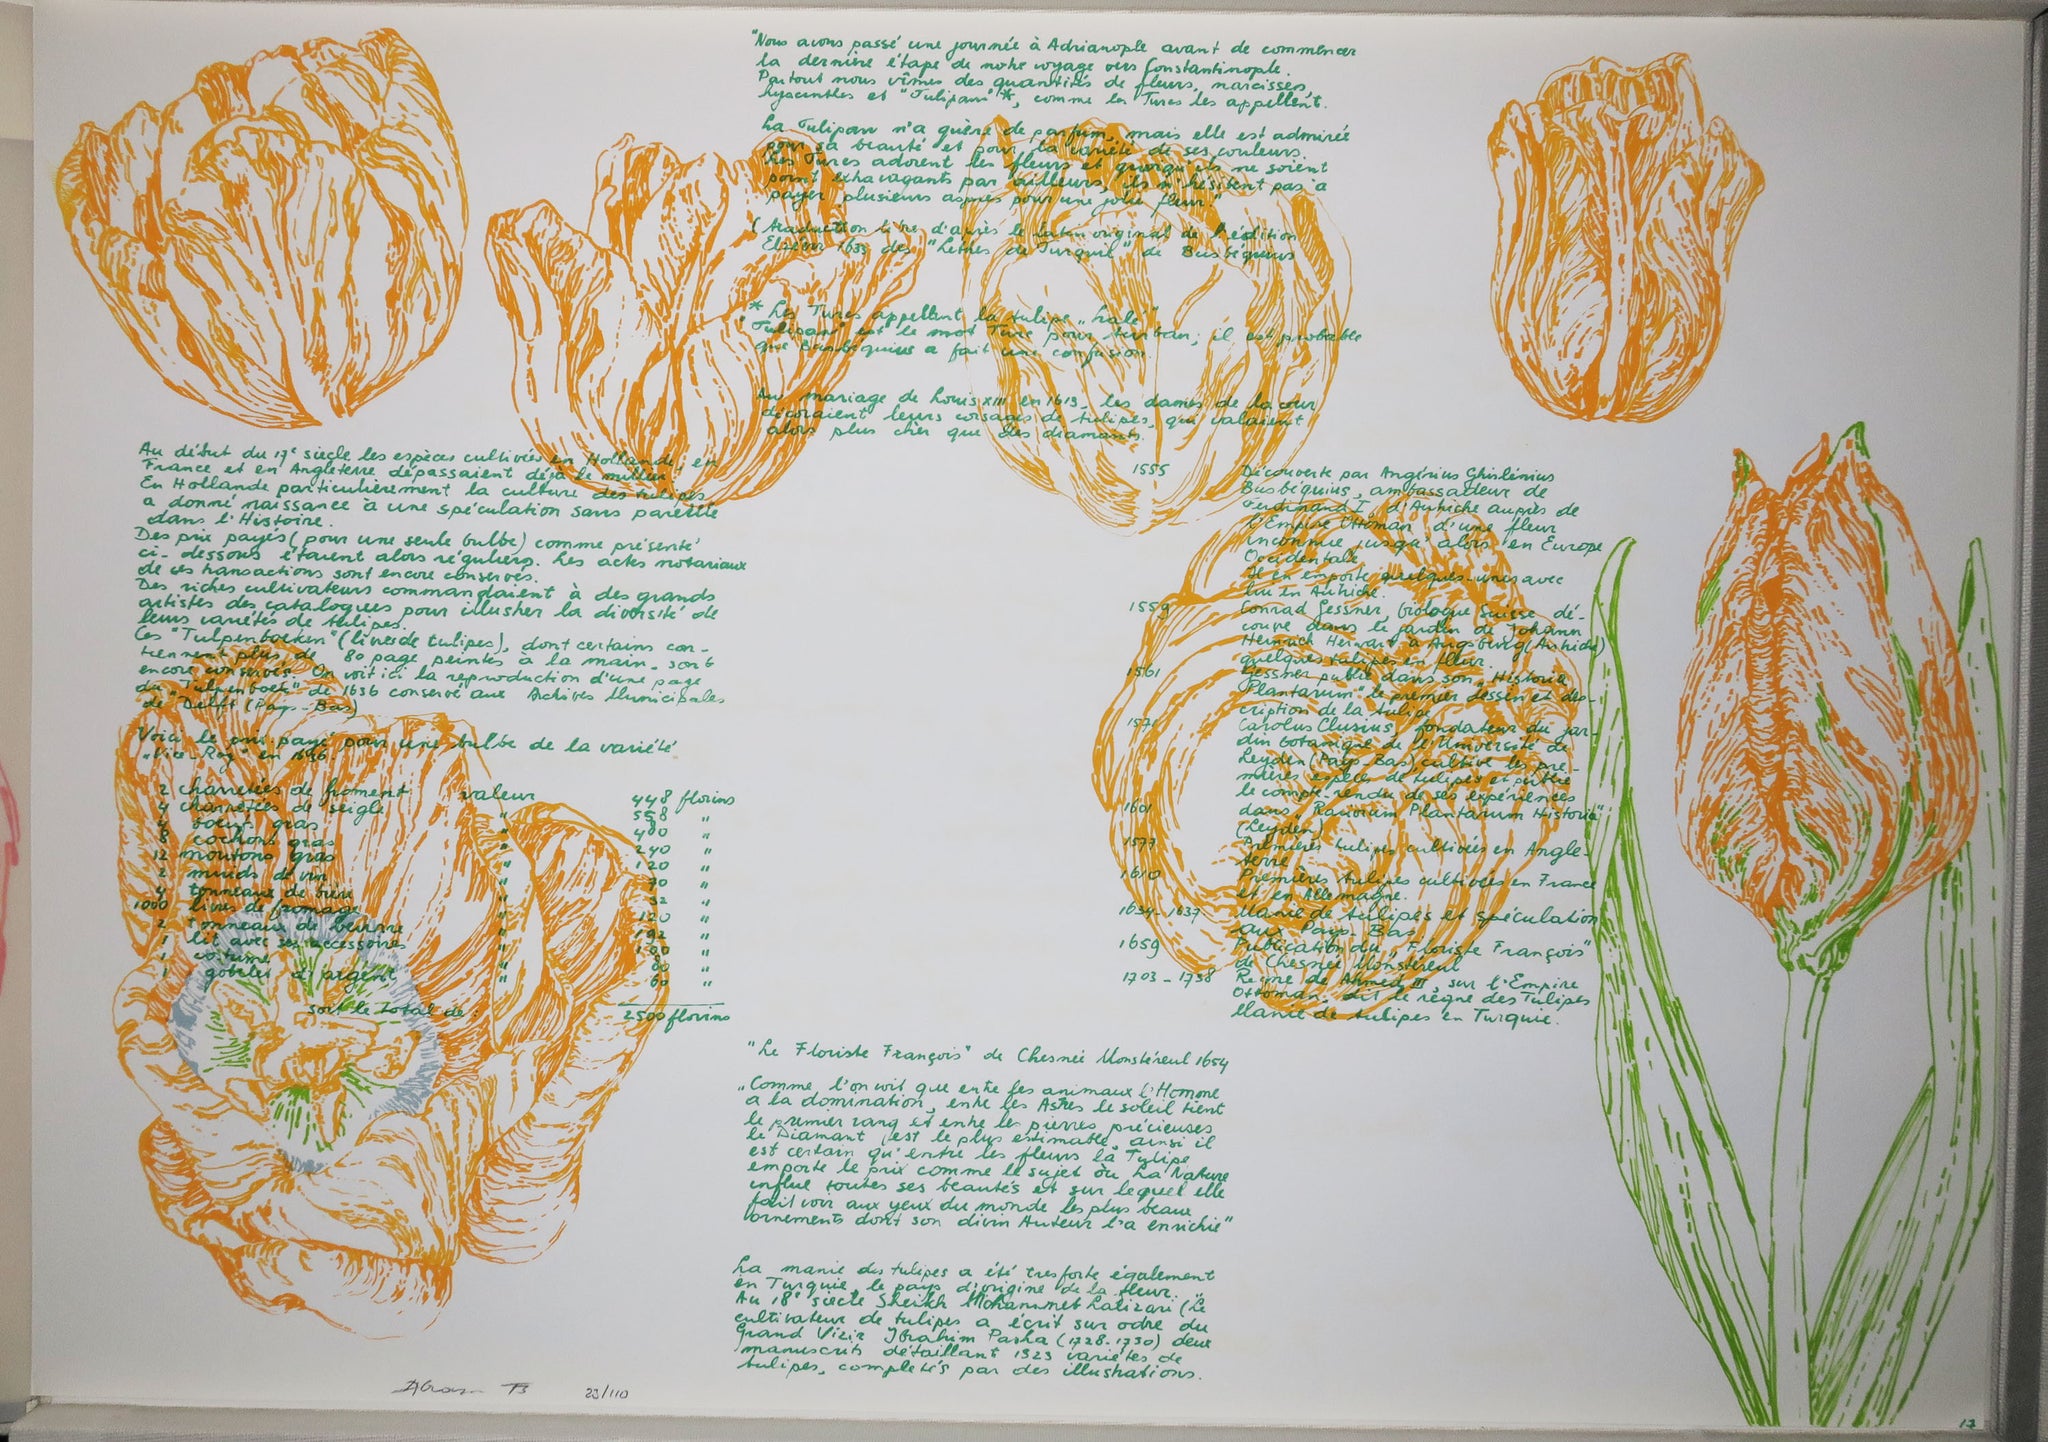 "Nous avons passé une journée à Adrianople avant de commencer
la dernière étape de notre voyage vers Constantinople.
Partout nous vîmes des quantités de fleurs, narcisses,
hyacinthes et "Tulipan"*, comme les Turcs les appellent.
La Tulipan n'a guère de parfum, mais elle est admirée
pour sa beauté et pour la variété de ses couleurs.
Les Turcs adorent les fleurs et quoiqu'ils ne soient
point extravagants par ailleurs, ils n'hésitent pas à
payer plusieurs aspres pour une jolie fleur."
(traduction libre d'après le latin original de l'édition
Elzévir 1633 des "Lettres de Turquie" de Busbéquius
* Les Turcs appellent la tulipe "Lalé"
"Tulipan" est le mot Turc pour turban; il est probable
que Busbéquius a fait une confusion
Au mariage de Louis XIII en 1613, les dames de la cour
décoraient leurs corsages de tulipes, qui valaient
alors plus cher que des diamants.
Au début du 17e siècle les espèces cultivées en Hollande, en
France et en Angleterre dépassaient déjà le millier
En Hollande particulièrement la culture des tulipes
a donné naissance à une spéculation sans pareille
dans l'Histoire.
Des prix payés (pour une seule bulbe) comme présenté
ci-dessous étaient alors réguliers. Les actes notariaux
de ces transactions sont encore conservés.
Des riches cultivateurs commandaient à des grands
artistes des catalogues pour illustrer la diversité de
leurs variétés de tulipes.
Ces "Tulpenboeken" (livres de tulipes), dont certains con-
tiennent plus de 80 page peintes à la main, sont
encore conservés. On voit ici la reproduction d'une page
du "Tulpenboek" de 1636 conservé aux Archives Municipales
de Delft (Pays-Bas)
Voici le prix payé pour une bulbe de la variété
"Vice-Roy" en 1636.
2 charretées de froment valeur 448 florins
4 charretées de seigle " 558 "
4 boeufs gras " 480 "
8 cochons gras " 240 "
12 moutons gras " 120 "
2 muids de vin " 70 "
4 tonneaux de bière " 32 "
1000 livres de fromage " 120 "
2 tonneaux de beurre " 192 "
1 lit avec ses accessoires " 100 "
1 costume " 80 "
1 gobelet d'argent " 60 "
soit le total de : 2500 florins
1555 Découverte par Angérius Ghislénius
Busbéquius, ambassadeur de
Ferdinand I, d'Autriche auprès de
l'Empire Ottoman d'une fleur
inconnue jusqu'alors en Europe
Occidentale
Il en emporte quelques-unes avec
lui en Autriche.
1559 Conrad Gessner, biologue Suisse dé-
couvre dans le jardin de Johann
Heinrich Herwart à Augsburg (Autriche)
quelques tulipes en fleur.
1561 Gessner publie dans son "Historia
Plantarum" le premier dessin et des-
cription de la tulipe
1571 Carolus Clusius, fondateur du jar-
din botanique de l'Université de
Leyden (Pays-Bas) cultive les pre-
mières espèces de tulipes et publie
le compte-rendu de ses expériences
1601 dans "Rariorum Plantarum Historia"
(Leyden)
1577 Premières tulipes cultivées en Angle-
terre
1610 Premières tulipes cultivées en France
et en Allemagne.
1634-1637 Manie de tulipes et spéculation
aux Pays-Bas
1659 Publication du "Floriste François"
de Chesnée Monstéreul
1703-1738 Règne de Ahmed III, sur l'Empire
Ottoman, dit le règne des Tulipes
Manie de tulipes en Turquie.
"Le Floriste François" de Chesnée Monstéreul 1654
"Comme l'on voit que entre les animaux l'Homme
a la domination, entre les Astres le soleil tient
le premier rang et entre les pierres précieuses
le Diamant est le plus estimable, ainsi il
est certain qu'entre les fleurs la Tulipe
emporte le prix comme le sujet où La Nature
influe toutes ses beautés et sur lequel elle
fait voir aux yeux du monde les plus beaux
ornements dont son divin Auteur l'a enrichie"
La manie des tulipes a été tres forte également
en Turquie, le pays d'origine de la fleur.
Au 18e siècle Sheikh Mohammet Lalizari ("Le
cultivateur de tulipes a écrit sur ordre du
Grand Vizir Ibrahim Pasha (1728-1730) deux
manuscrits détaillant 1323 variétés de
tulipes, completés par des illustrations.
23/110
17